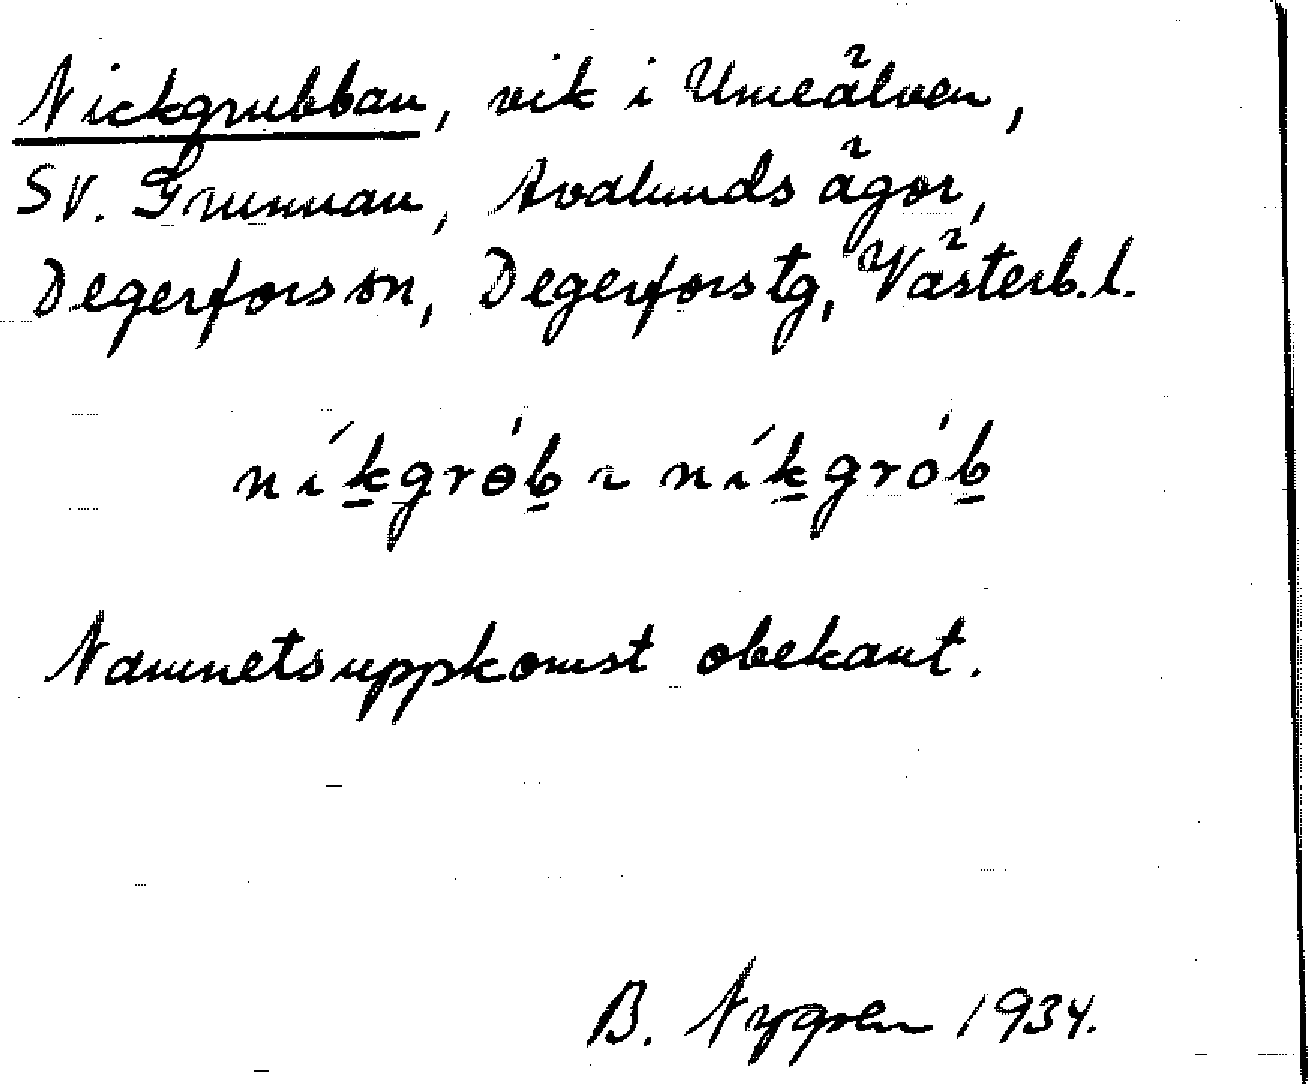 Nickgrubban, vik i Umeälven,
SV. Grunnan, Avalunds ägor,
Degerfors sn, Degerfors tg, Västerb. l.
níkgrób ~ níkgrób
Namnets uppkomst obekant.
B. Nygren 1934.